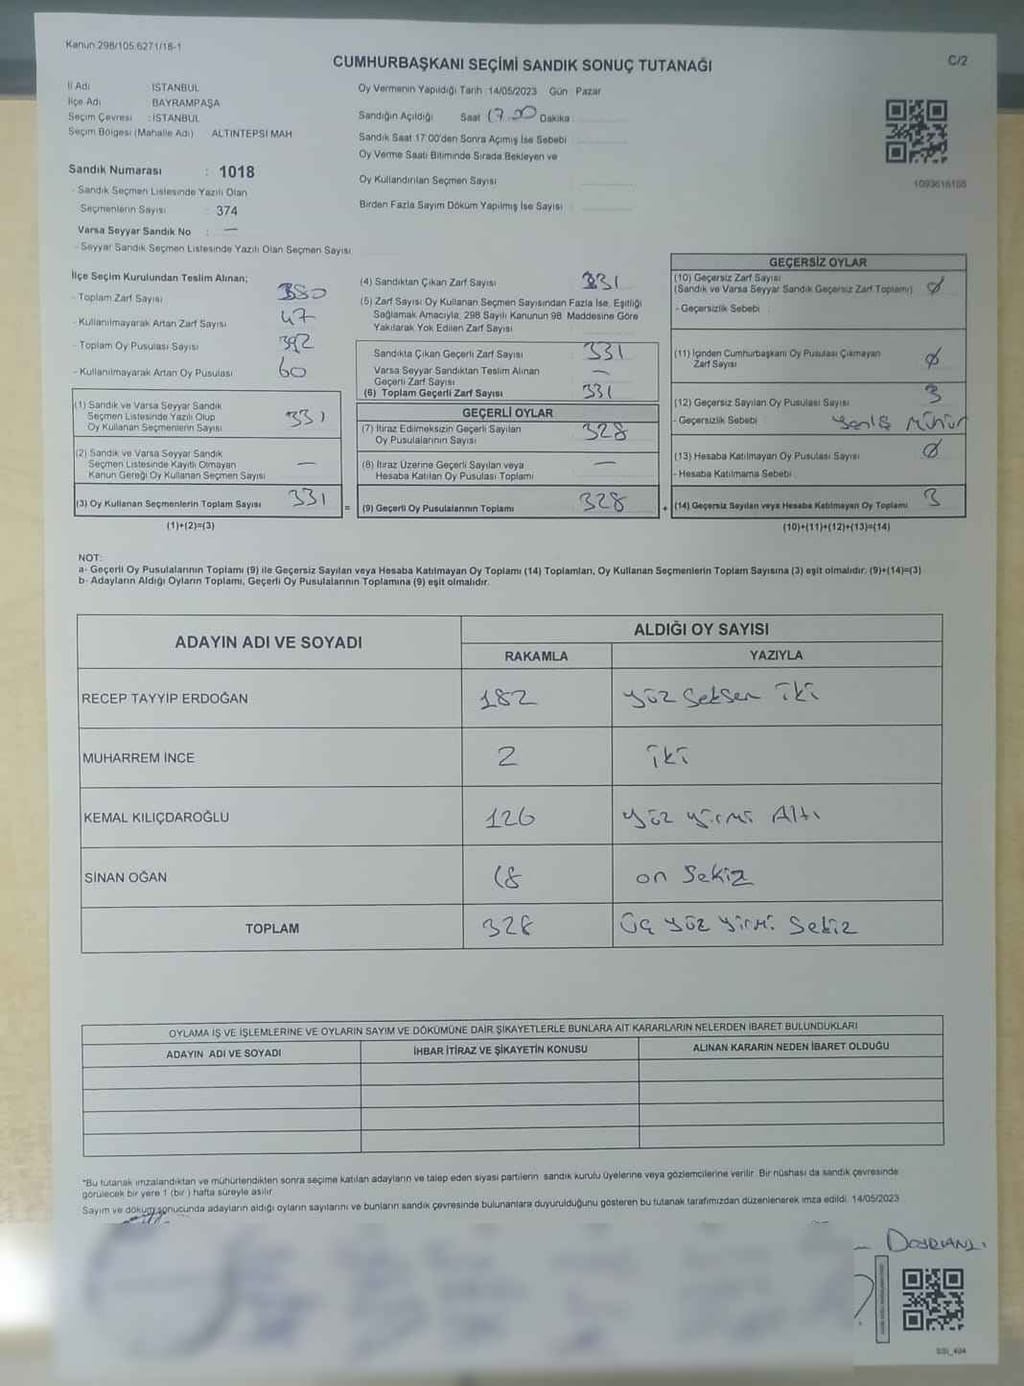 Kanun 298/105,6271/18-1
CUMHURBAŞKANI SEÇİMİ SANDIK SONUÇ TUTANAĞI
C/2
İl Adı İSTANBUL
İlçe Adı BAYRAMPAŞA
Seçim Çevresi :İSTANBUL
Seçim Bölgesi (Mahalle Adı) ALTINTEPSİ MAH
Sandık Numarası : 1018
- Sandık Seçmen Listesinde Yazılı Olan
Seçmenlerin Sayısı : 374
Varsa Seyyar Sandık No : —
- Seyyar Sandık Seçmen Listesinde Yazılı Olan Seçmen Sayısı
Oy Vermenin Yapıldığı Tarih :14/05/2023 Gün Pazar
Sandığın Açıldığı Saat 17.00 Dakika
Sandık Saat 17:00'den Sonra Açımış İse Sebebi
Oy Verme Saati Bitiminde Sırada Bekleyen ve
Oy Kullandırılan Seçmen Sayısı
Birden Fazla Sayım Döküm Yapılmış İse Sayısı
1093616108
İlçe Seçim Kurulundan Teslim Alınan;
- Toplam Zarf Sayısı 380
- Kullanılmayarak Artan Zarf Sayısı 47
- Toplam Oy Pusulası Sayısı 392
- Kullanılmayarak Artan Oy Pusulası 60
(1) Sandık ve Varsa Seyyar Sandık
Seçmen Listesinde Yazılı Olup
Oy Kullanan Seçmenlerin Sayısı 331
(2) Sandık ve Varsa Seyyar Sandık
Seçmen Listesinde Kayıtlı Olmayan
Kanun Gereği Oy Kullanan Seçmen Sayısı —
(3) Oy Kullanan Seçmenlerin Toplam Sayısı 331
(1)+(2)=(3)
=
(4) Sandıktan Çıkan Zarf Sayısı 331
(5) Zarf Sayısı Oy Kullanan Seçmen Sayısından Fazla İse, Eşitliği
Sağlamak Amacıyla, 298 Sayılı Kanunun 98. Maddesine Göre
Yakılarak Yok Edilen Zarf Sayısı
Sandıkta Çıkan Geçerli Zarf Sayısı 331
Varsa Seyyar Sandıktan Teslim Alınan
Geçerli Zarf Sayısı —
(6) Toplam Geçerli Zarf Sayısı 331
GEÇERLİ OYLAR
(7) İtiraz Edilmeksizin Geçerli Sayılan
Oy Pusulalarının Sayısı 328
(8) İtiraz Üzerine Geçerli Sayılan veya
Hesaba Katılan Oy Pusulası Toplamı —
(9) Geçerli Oy Pusulalarının Toplamı 328
+
GEÇERSİZ OYLAR
(10) Geçersiz Zarf Sayısı
(Sandık ve Varsa Seyyar Sandık Geçersiz Zarf Toplamı) Ø
- Geçersizlik Sebebi
(11) İçinden Cumhurbaşkanı Oy Pusulası Çıkmayan
Zarf Sayısı Ø
(12) Geçersiz Sayılan Oy Pusulası Sayısı 3
- Geçersizlik Sebebi Yanlış Mühür
(13) Hesaba Katılmayan Oy Pusulası Sayısı Ø
- Hesaba Katılmama Sebebi
(14) Geçersiz Sayılan veya Hesaba Katılmayan Oy Toplamı 3
(10)+(11)+(12)+(13)=(14)
NOT:
a- Geçerli Oy Pusulalarının Toplamı (9) ile Geçersiz Sayılan veya Hesaba Katılmayan Oy Toplamı (14) Toplamları, Oy Kullanan Seçmenlerin Toplam Sayısına (3) eşit olmalıdır. (9)+(14)=(3)
b- Adayların Aldığı Oyların Toplamı, Geçerli Oy Pusulalarının Toplamına (9) eşit olmalıdır.
ADAYIN ADI VE SOYADI
ALDIĞI OY SAYISI
RAKAMLA YAZIYLA
RECEP TAYYİP ERDOĞAN 182 yüz Seksen iki
MUHARREM İNCE 2 iki
KEMAL KILIÇDAROĞLU 126 yüz yirmi Altı
SİNAN OĞAN 18 on Sekiz
TOPLAM 328 Üç yüz yirmi Sekiz
OYLAMA İŞ VE İŞLEMLERİNE VE OYLARIN SAYIM VE DÖKÜMÜNE DAİR ŞİKAYETLERLE BUNLARA AİT KARARLARIN NELERDEN İBARET BULUNDUKLARI
ADAYIN ADI VE SOYADI İHBAR İTİRAZ VE ŞİKAYETİN KONUSU ALINAN KARARIN NEDEN İBARET OLDUĞU
*Bu tutanak imzalandıktan ve mühürlendikten sonra seçime katılan adayların ve talep eden siyasi partilerin sandık kurulu üyelerine veya gözlemcilerine verilir. Bir nüshası da sandık çevresinde
görülecek bir yere 1 (bir ) hafta süreyle asılır.
Sayım ve döküm sonucunda adayların aldığı oyların sayılarını ve bunların sandık çevresinde bulunanlara duyurulduğunu gösteren bu tutanak tarafımızdan düzenlenerek imza edildi. 14/05/2023